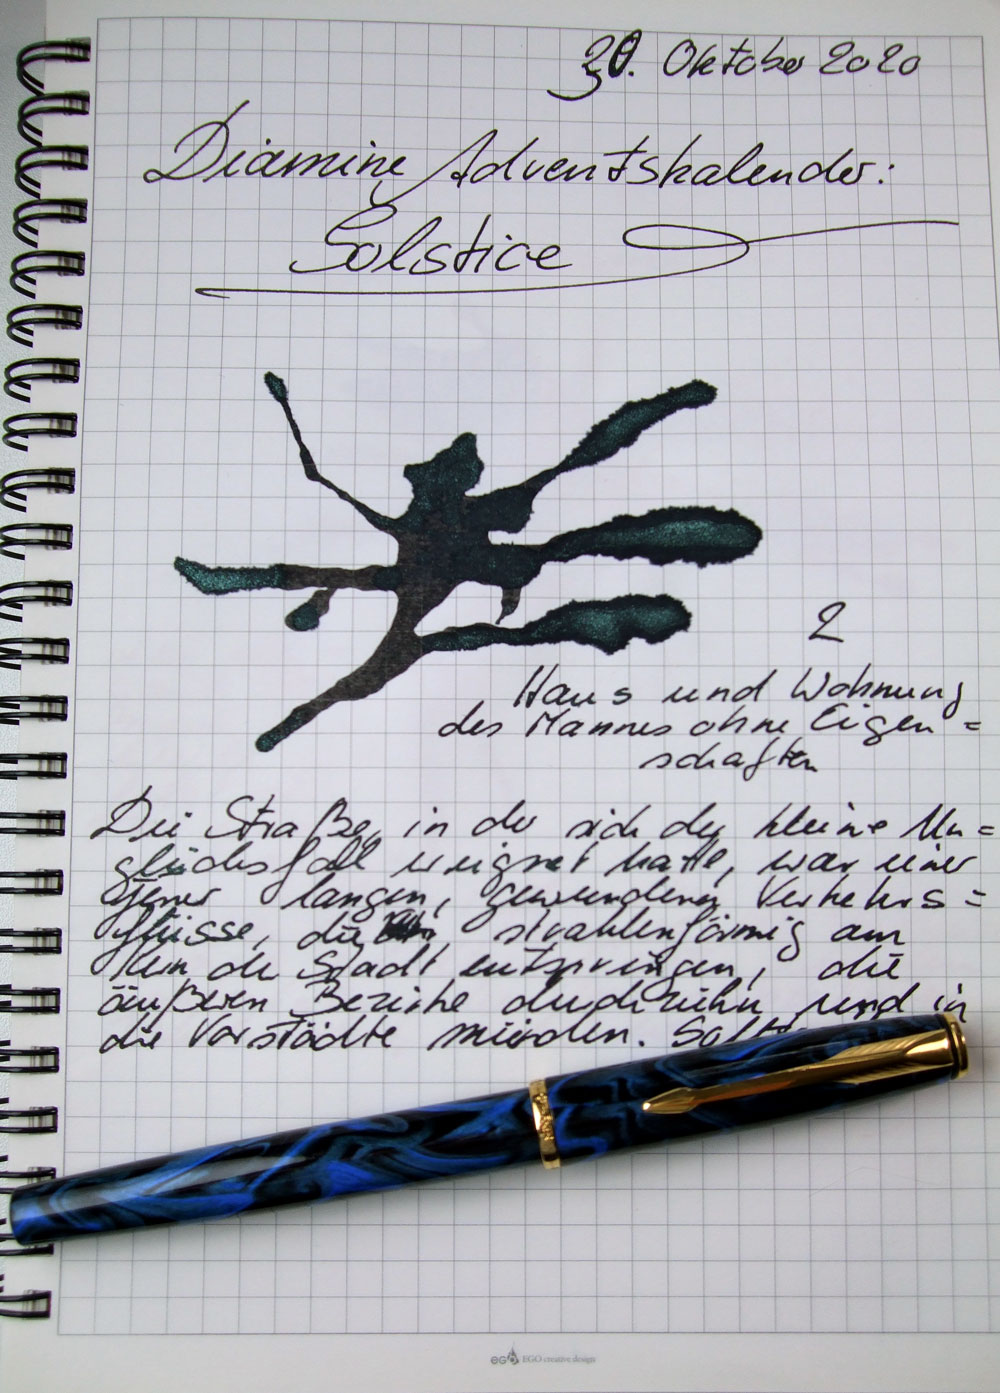 30. Oktober 2020
Diamine Adventskalender:
Solstice
2
Haus und Wohnung
des Mannes ohne Eigen=
schaften
Die Straße, in der sich der kleine Un=
glücksfall ereignet hatte, war einer
jener langen, gewundenen Verkehrs=
flüsse, die strahlenförmig am
Kern der Stadt entspringen, die
äußeren Bezirke durchziehn und in
die Vorstädte münden. Sollt
ego EGO creative design